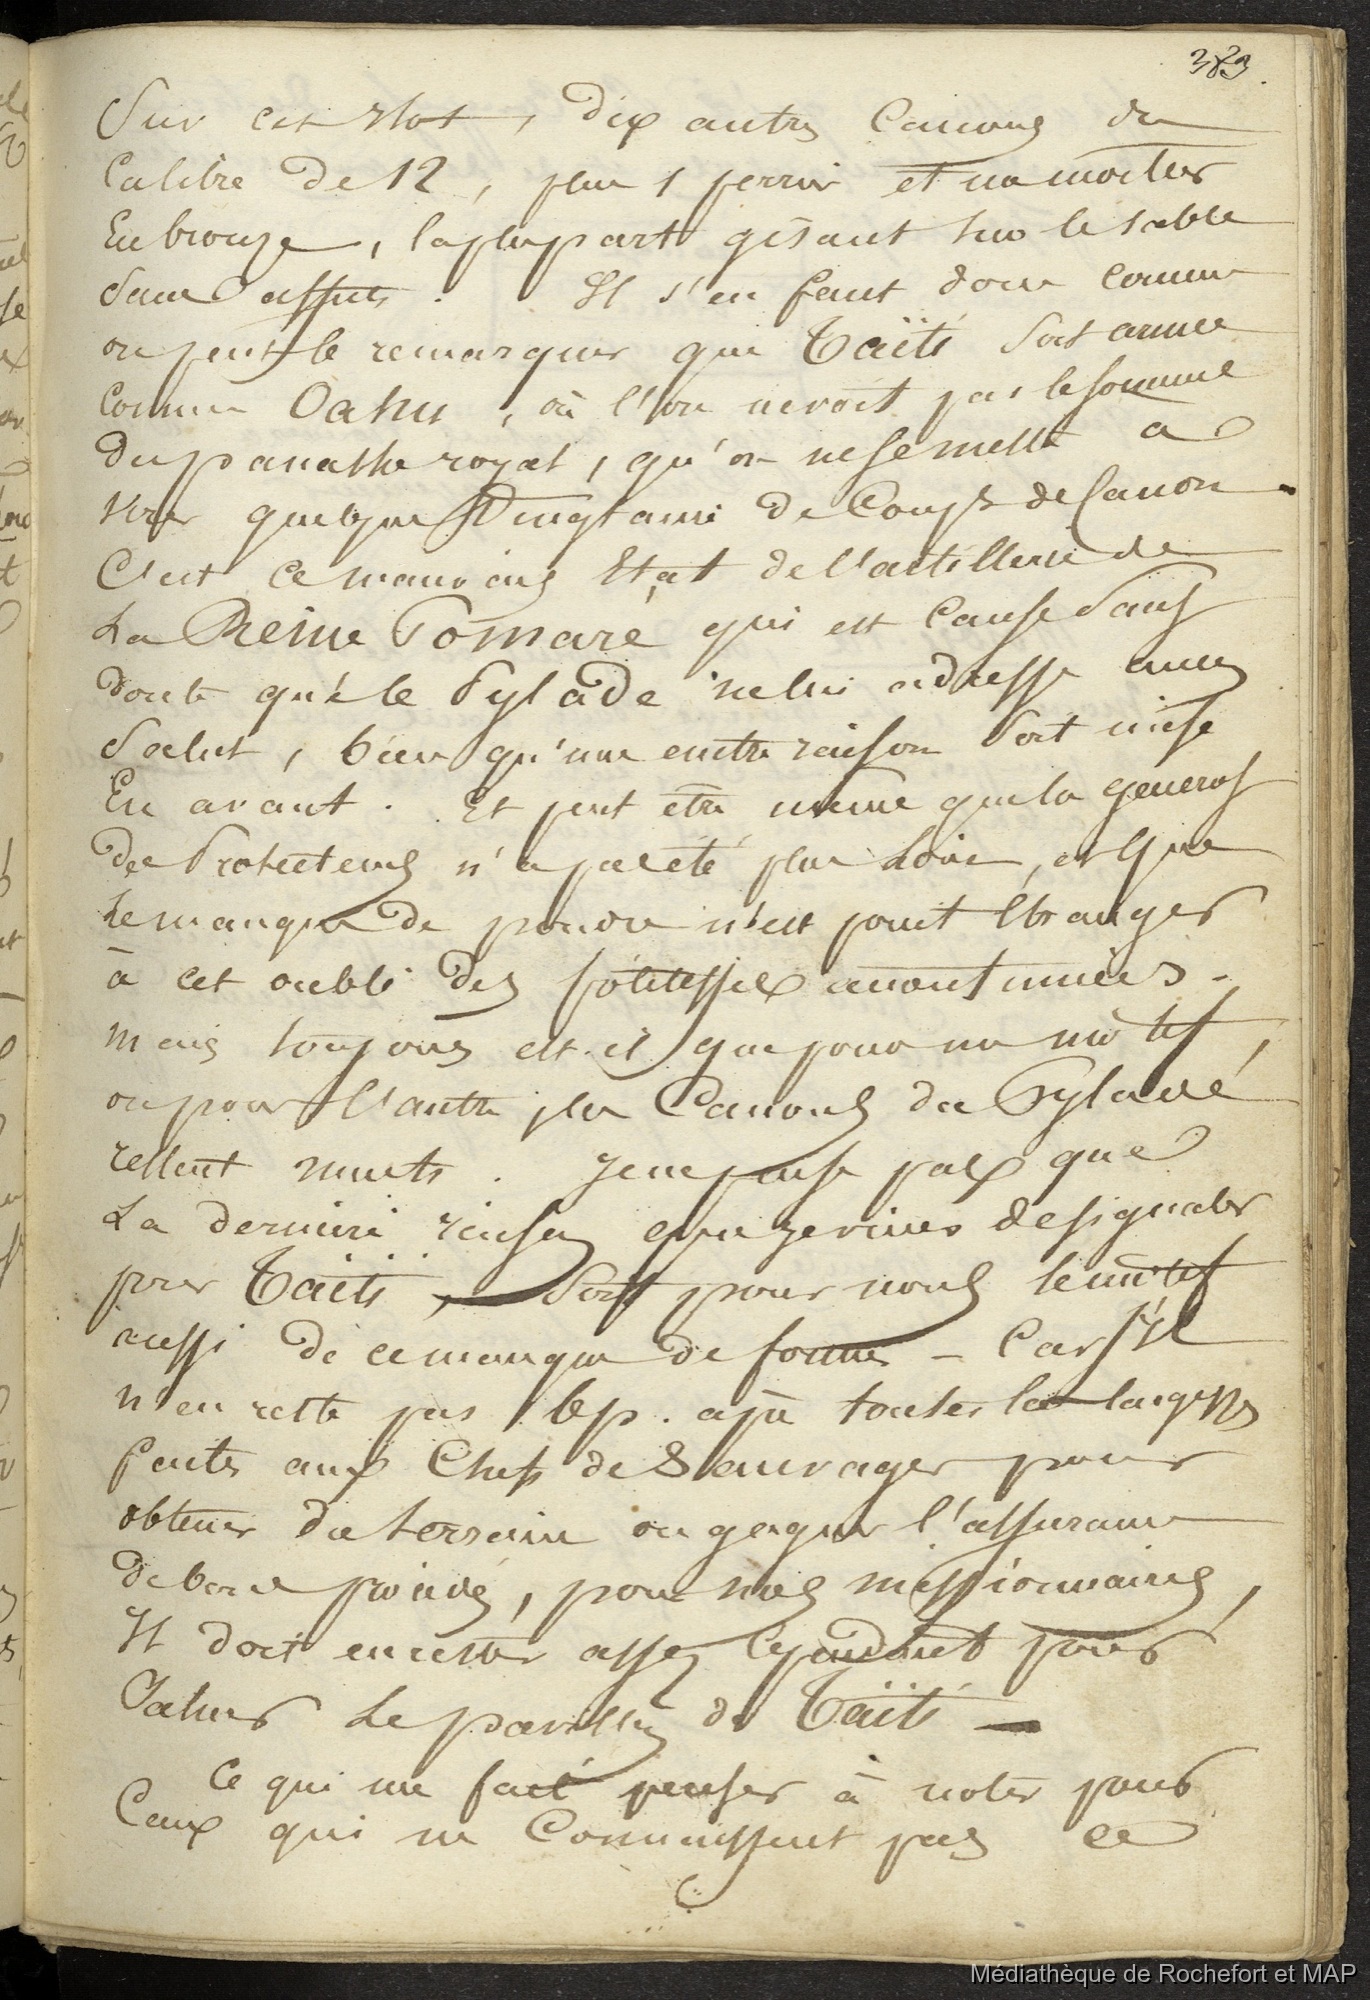 383
Sur cet Ilot, dix autres Canons du
Calibre de 12, plus 1 perrier et un mortier
En bronze, la plupart gisant sur le sable
Sans affuts. Il s'en faut donc comme
on peut le remarquer que Taïti soit armée
Comme Oahu, où l'on ne voit pas le sommet
Du panache royal, qu'on ne se mette a
tirer quelque vingtaine de Coups de Canon.
C'est ce mauvais Etat de l'artillerie de
La Reine Pomaré qui est cause sans
doute que le Pylade ne lui adresse aucun
Salut, bien qu'une autre raison soit mise
En avant. Et peut être même que la
des Protecteurs n'a pas été plus loin, et que
le manque de poudre n'est point Etranger
à cet oubli des politesses
mais toujours est-il que pour un motif,
ou pour l'autre les Canons du Pylade
restent muets. Je ne pense pas que
La dernière raison que je viens de signaler
pour Taïti, soit pour nous le motif
aussi de ce manque de formes - Car s'il
n'en reste pas bp. après toutes les largesses
faites aux Chefs de Sauvages pour
obtenir du terrain ou gagner l'assurance
de bons procédés, pour nos missionnaires,
Il doit en rester assez Cependant pour
Saluer le pavillon de Taïti —
Ce qui me fait penser à noter pour
Ceux qui ne Connaissent pas ce
Médiathèque de Rochefort et MAP